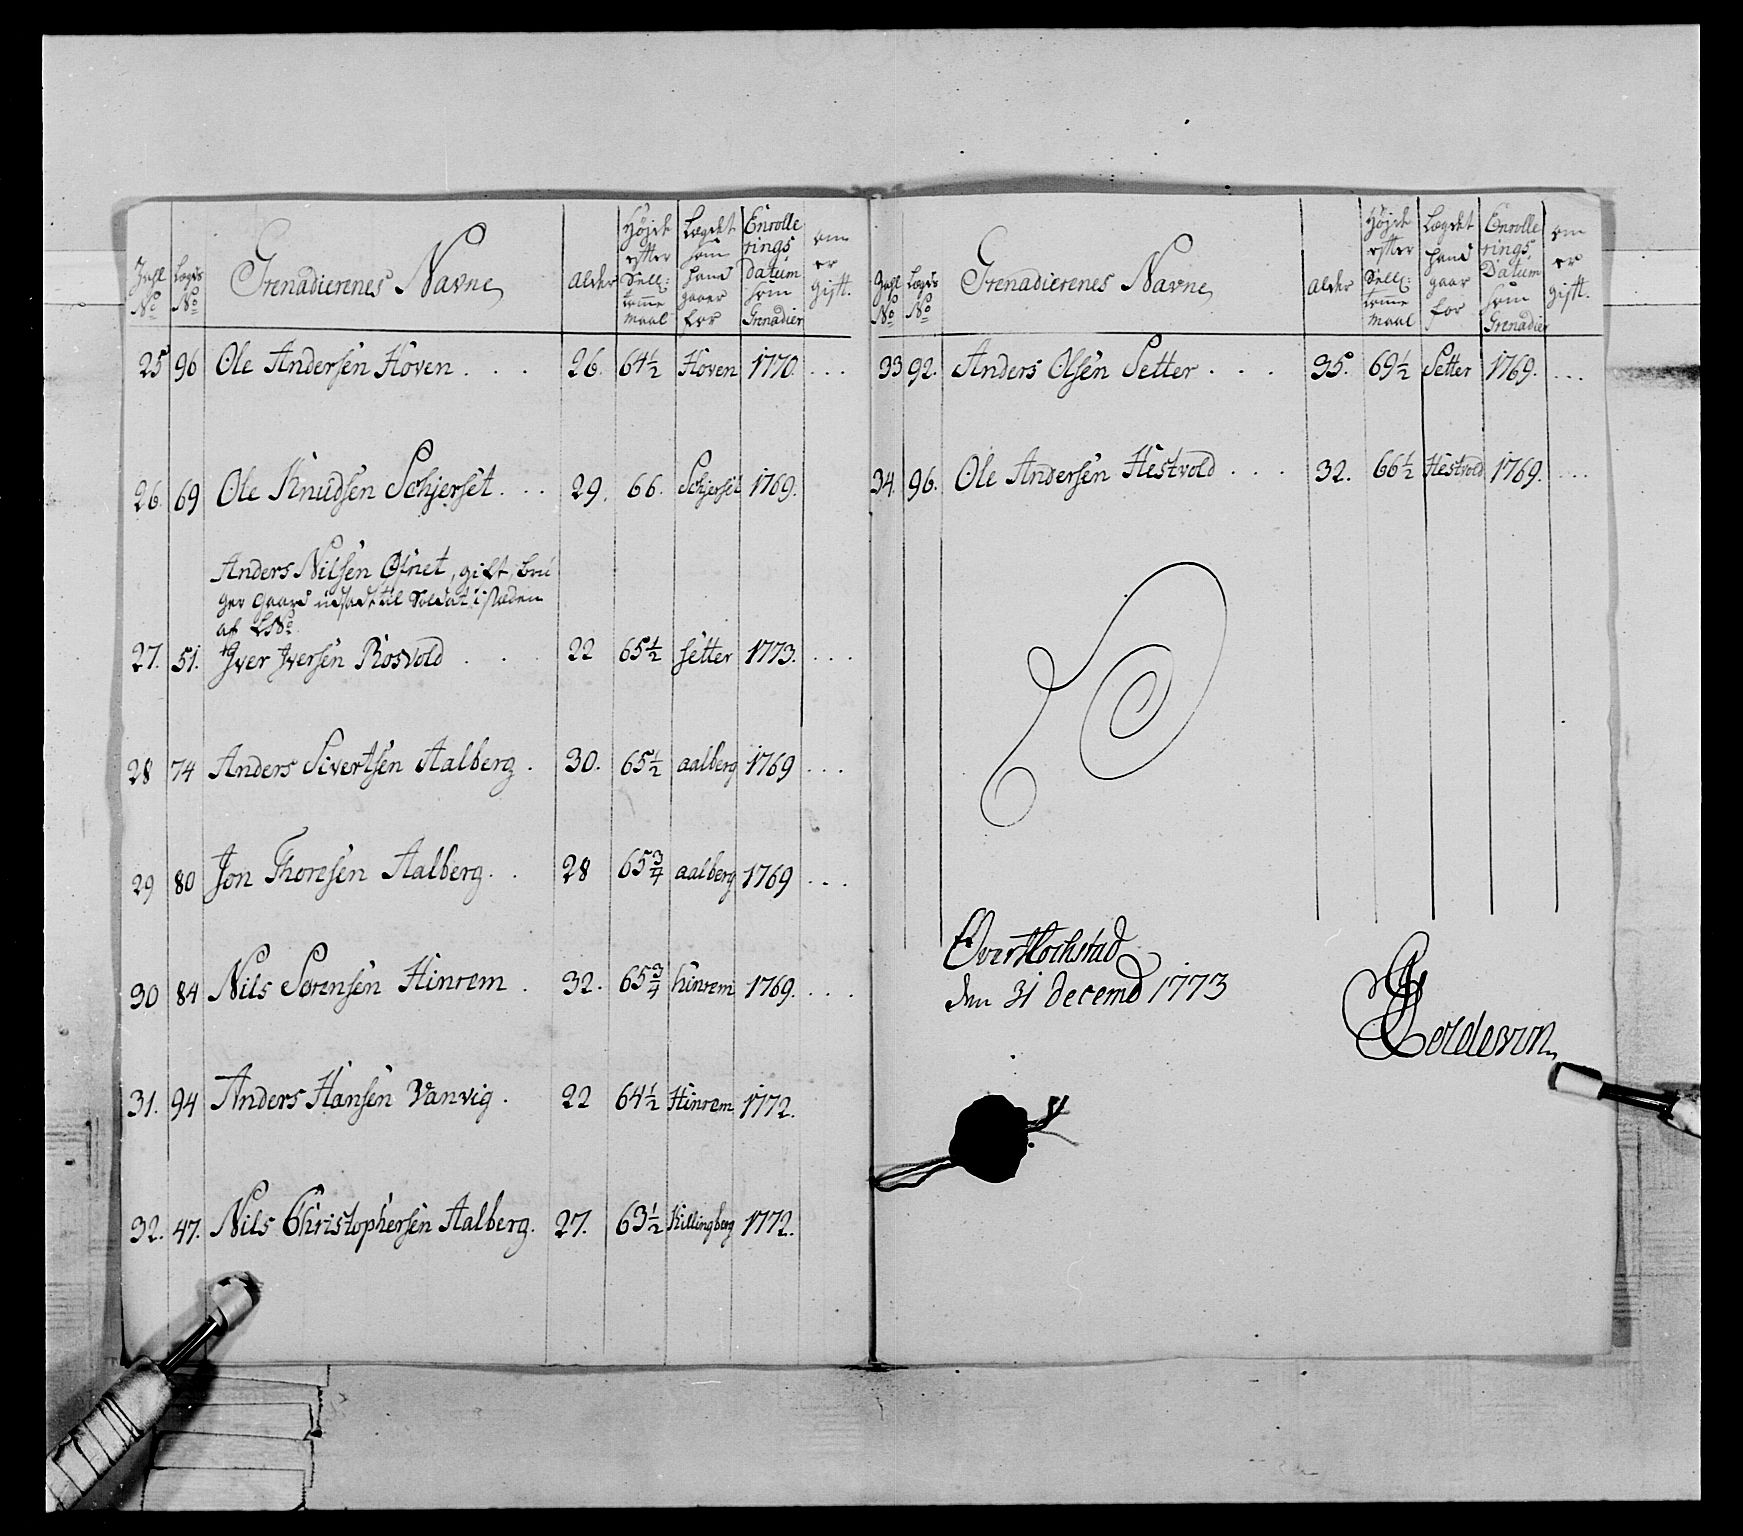 Tahl No | Lægds No | Grenadierenes Navne | alder | Højde efter Sell: tomme maal | Lægdet som hand gaaer for | Enrolle rings Datum som Grenadier | om er gift.
25 | 96 | Ole Andersen Hoven . . . | 26. | 64½ | Hoven | 1770. | . . .
26. | 69 | Ole Knudsen Schjerset . . . | 29. | 66. | Schjerset | 1769.
Anders Nilsen Øfnet, gift, bru
ger gaard udsadt til Soldat i stæden
af LNo
27. | 51. | Iver Iversen Rosvold . . . | 22 | 65½ | setter | 1773. | . . .
28 | 74 | Anders Sivertsen Aalberg . | 30. | 65½ | aalberg | 1769 | . . .
29 | 80 | Jon Thoresen Aalberg . . | 28 | 65¾ | aalberg | 1769 | . . .
30 | 84 | Nils Sørensen Hinrem . | 32. | 65¾ | hinrem | 1769. | . . .
31. | 94 | Anders Hansen Vanvig . | 22 | 64½ | Hinrem | 1772.
32. | 47. | Nils Christophersen Aalberg. | 27. | 63½ | Killingberg | 1772.
Tahl No | Lægds No | Grenadierenes Navne | alder | Højde efter Sell: tomme maal | Lægdet hand gaar for | Enrolle rings Datum som Grenadier | om er gift.
33 | 92. | Anders Olsen Setter . . . | 35. | 69½ | Setter | 1769. | . . .
34. | 96. | Ole Andersen Hestvold . . . | 32. | 66½ | Hestvold | 1769. | . . .
Over Kochstad
den 31 decemb 1773